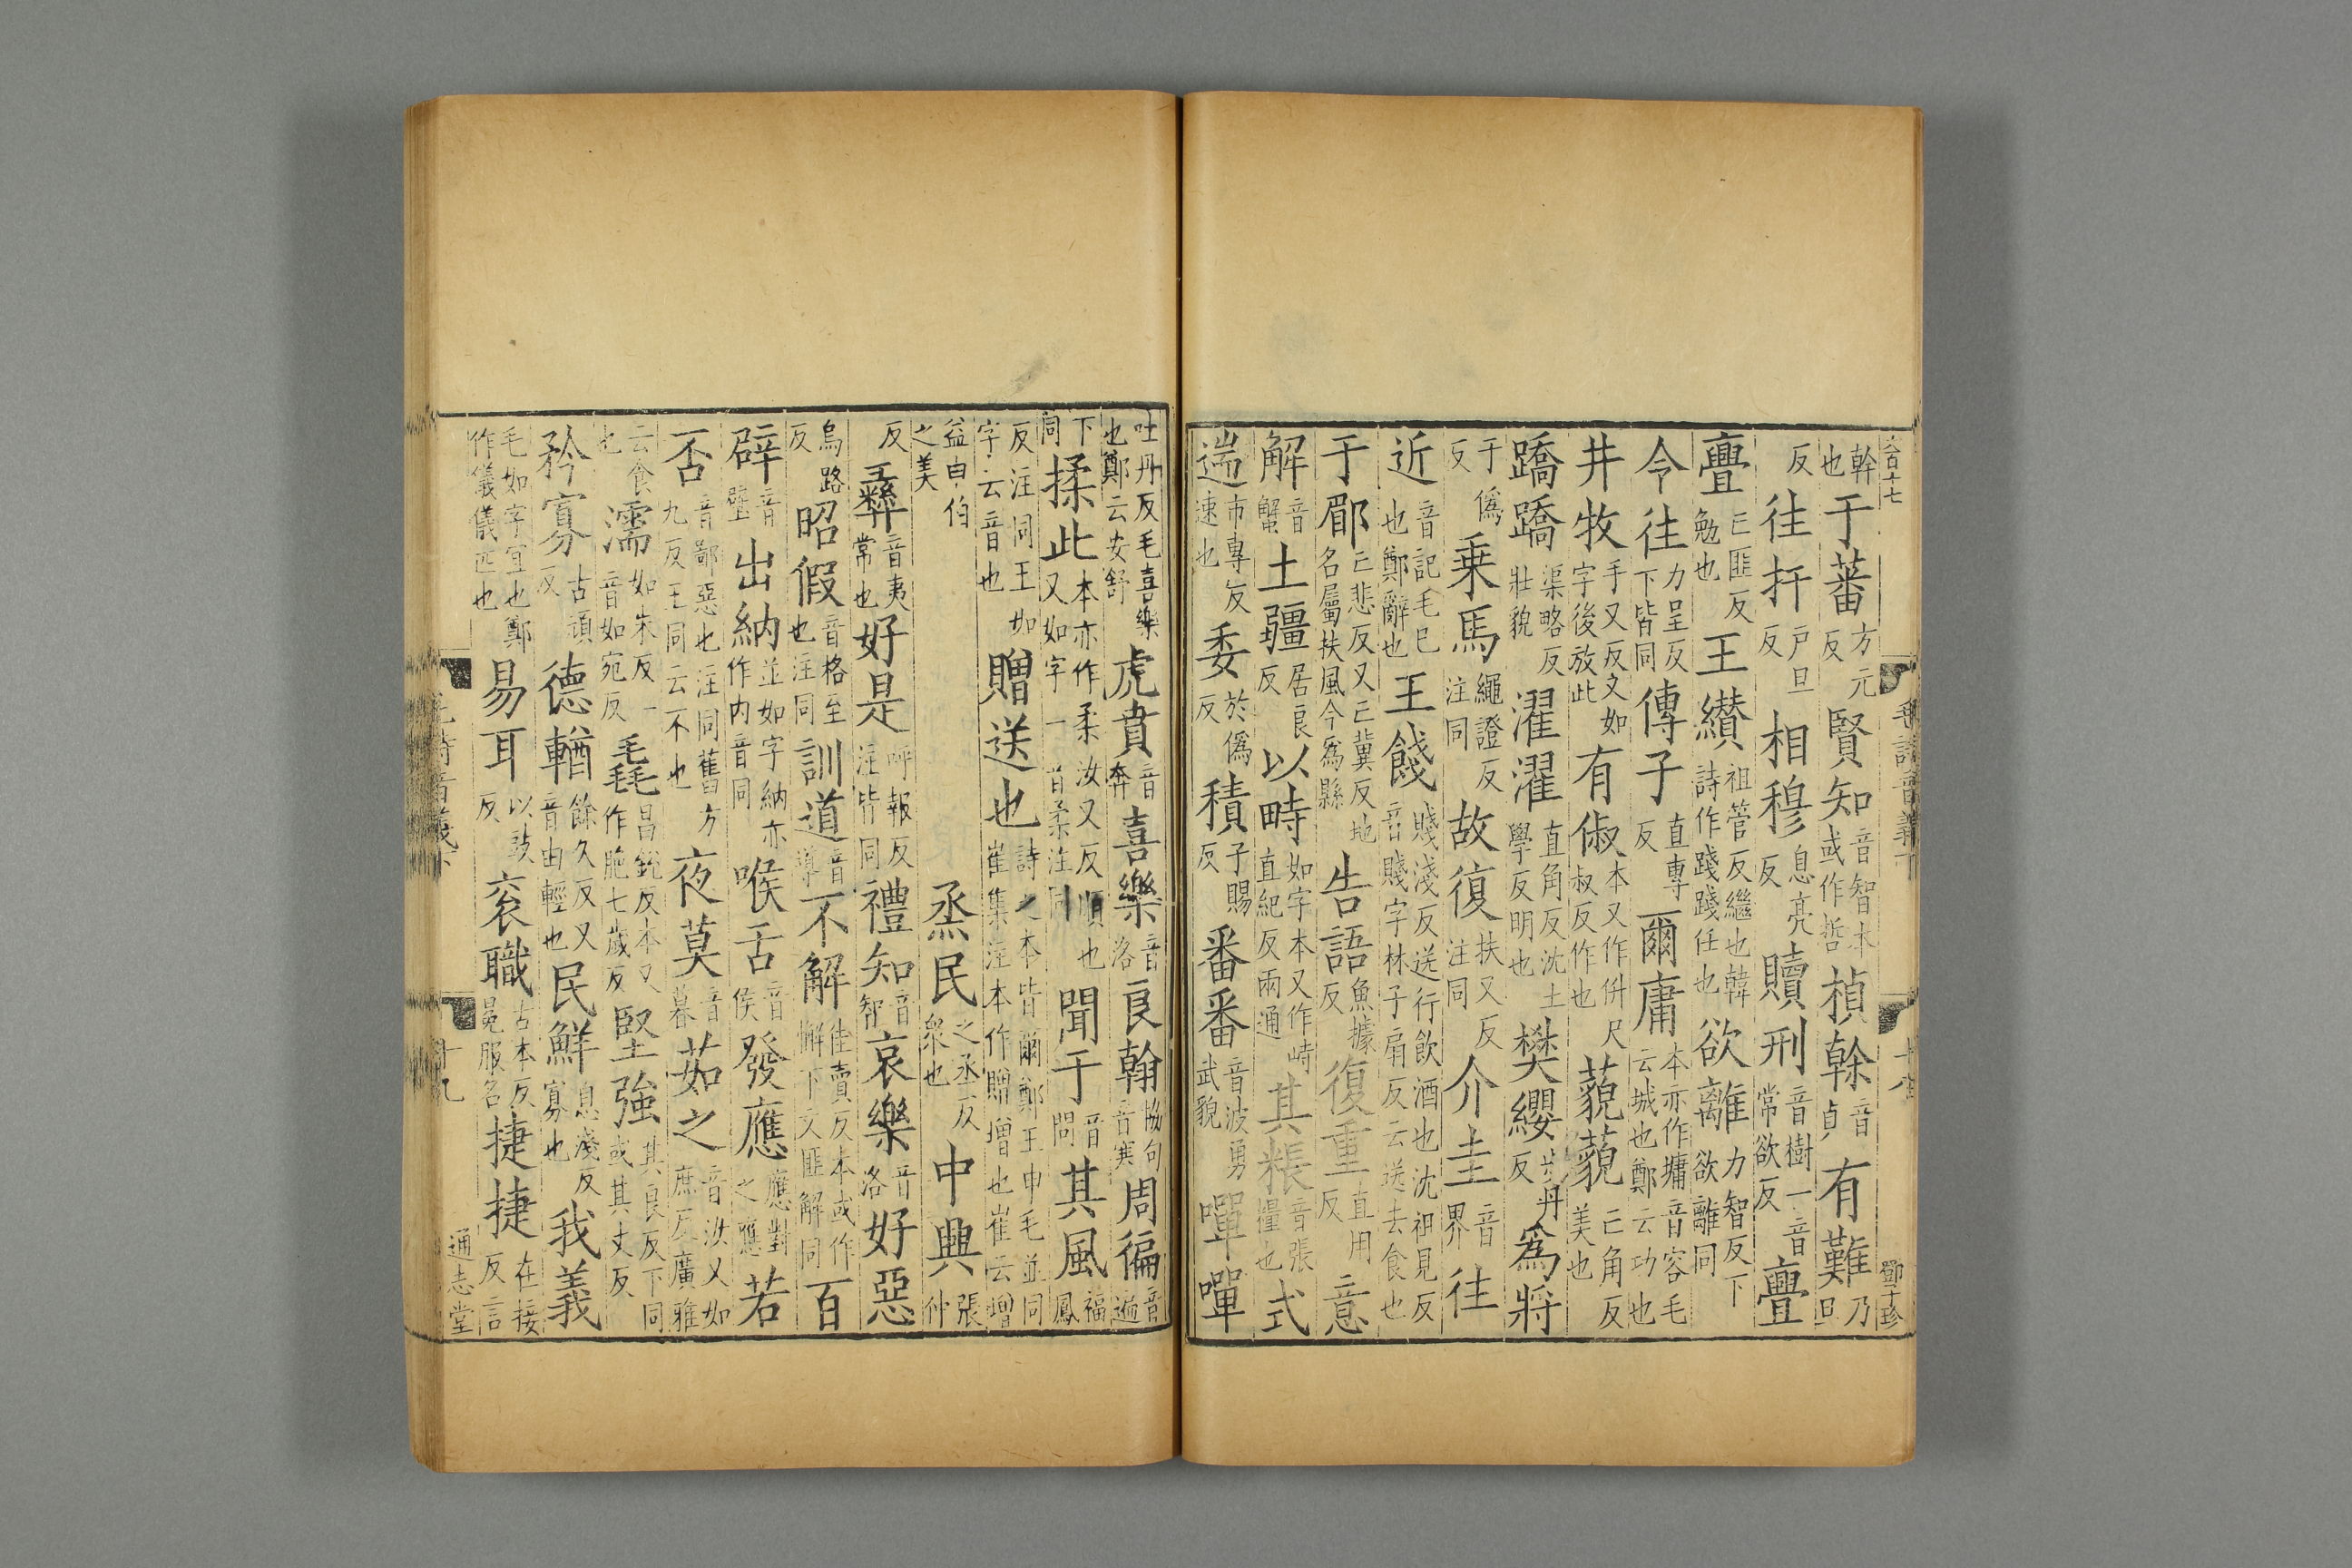 幹也于蕃方元反賢知音智本或作哲楨幹音貞有難乃旦
反往扞戶旦反相穆息亮反贖刑音樹一音常欲反亹
亹亡匪反勉也王纘祖管反繼也韓詩作踐踐任也欲離力智反下欲離同
令往力呈反下皆同傳子直專反爾庸本亦作墉音容毛云城也鄭云功也
井牧手又反又如字後放此有俶本又作㑐尺叔反作也藐藐亡角反美也
蹻蹻渠略反壯貌濯濯直角反沈土學反明也樊纓步丹反為將
于偽反乘馬繩證反注同故復扶又反注同介圭音界往
近音記毛已也鄭辭也王餞賤淺反送行飲酒也沈祖見反音賤字林子扇反云送去食也
于郿亡悲反又亡冀反地名屬扶風今為縣告語魚據反復重直用反意
解音蟹土疆居良反以畤如字本又作峙直紀反兩通其粻音張糧也式
遄市專反速也委於偽反積子賜反番番音波勇武貌嘽嘽
吐丹反毛喜樂也鄭云安舒虎賁音奔喜樂音洛良翰協句音寒周徧音遍
下同揉此本亦作柔汝又反又如字一音柔注同順也聞于音問其風福鳳
反注同王如字云音也贈送也詩之本皆爾鄭王申毛並同崔集注本作贈增也崔云增
益申伯之美烝民之丞反眾也中興張仲
反彝音夷常也好是呼報反注皆同禮知音智哀樂音洛好惡
烏路反昭假音格至也注同訓道音導不解佳賣反本或作懈下文匪解同百
辟音璧出納並如字納亦作内音同喉舌音侯發應應對之應若
否音鄙惡也注同舊方九反王同云不也夜莫音暮茹之音汝又如庶反廣雅
云食也濡如朱反一音如宛反毳昌銳反本又作脆七歲反堅強其良反下同或其丈反
矜寡古頑反德輶餘久反又音由輕也民鮮息淺反寡也我義
毛如字宜也鄭作儀儀匹也易耳以豉反袞職古本反冕服名捷捷在接反言
通志堂